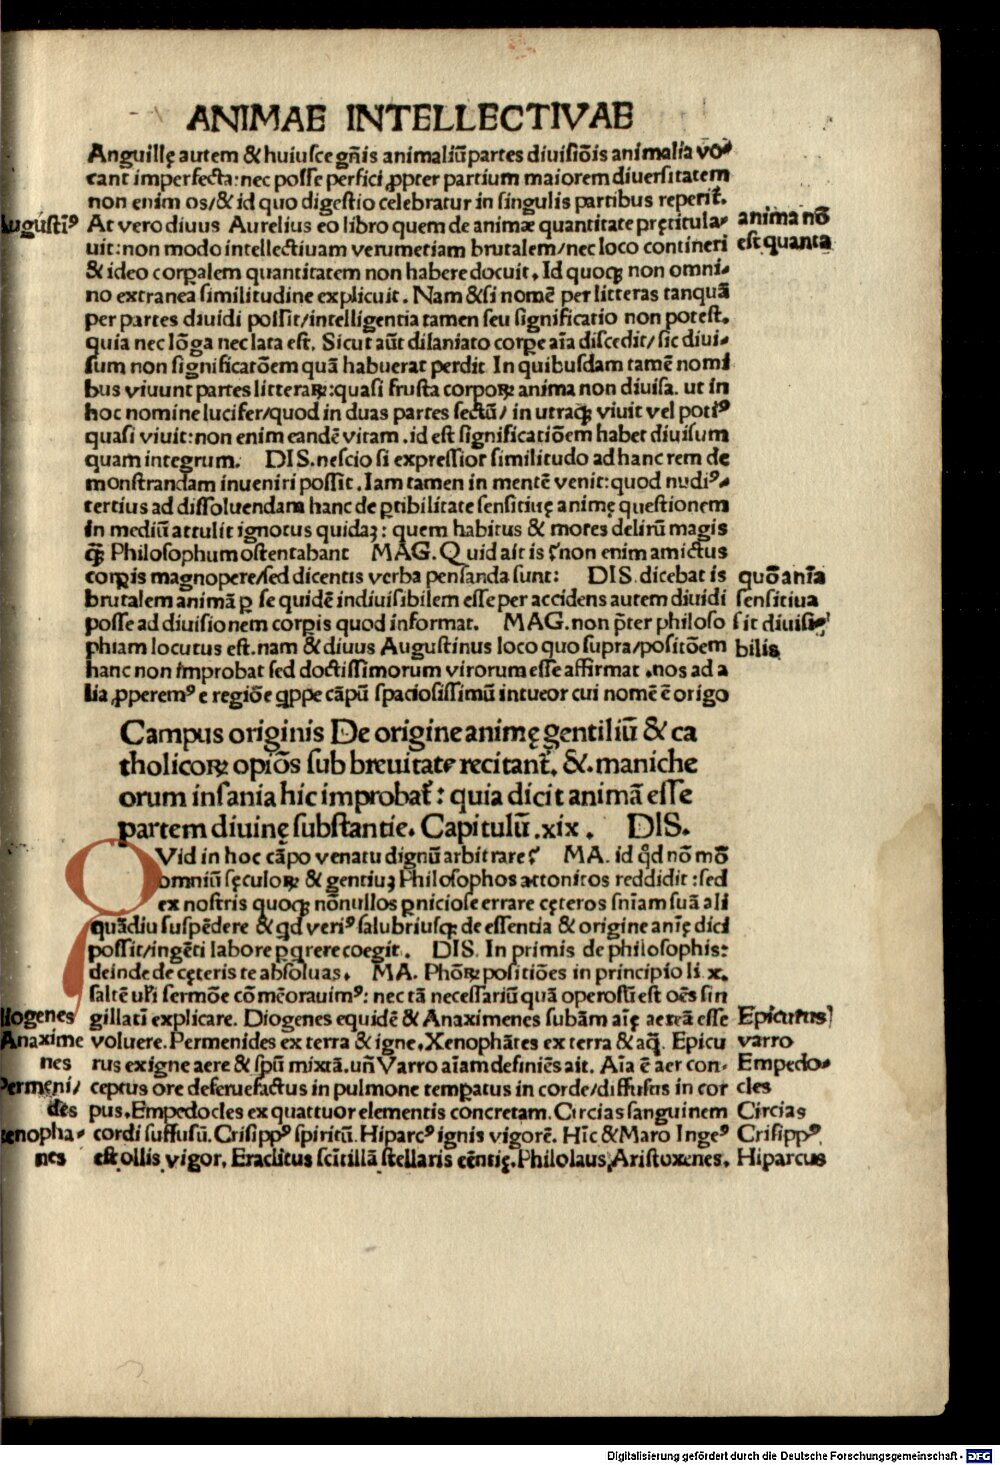 ANIMAE INTELLECTIVAE
Anguillę autem & huiusce gñis animaliū partes diuisiōis animalia vo⁊
cant imperfecta: nec posse perfici ꝓpter partium maiorem diuersitatem
non enim os/& id quo digestio celebratur in singulis partibus reperit̄.
Augusti⁹
At vero diuus Aurelius eo libro quem de animæ quantitate prętitula⸗
anima nō
uit: non modo intellectiuam verumetiam brutalem/nec loco contineri
est quanta
& ideo corꝑalem quantitatem non habere docuit. Id quoqꝫ non omni⸗
no extranea similitudine explicuit. Nam & si nomē per litteras tanquā
per partes diuidi possit/intelligentia tamen seu significatio non potest.
quia nec lōga nec lata est. Sicut aūt dilaniato corꝑe aīa discedit/sic diui⸗
sum non significatōem quā habuerat perdit. In quibusdam tamē nomi
bus viuunt partes litteraꝝ: quasi frusta corpoꝝ anima non diuisa. ut in
hoc nomine lucifer/quod in duas partes sectū/ in utraqꝫ viuit vel poti⁹
quasi viuit: non enim eandē vitam .id est significatiōem habet diuisum
quam integrum. DIS. nescio si expressior similitudo ad hanc rem de
monstrandam inueniri possit. Iam tamen in mentē venit: quod nudi⁹⸗
tertius ad dissoluendam hanc de ꝑtibilitate sensitiuę animę questionem
in mediū attulit ignotus quidaꝫ: quem habitus & mores delirū magis
qꝫ Philosophum ostentabant MAG. Quid ait is? non enim amictus
corꝑis magnopere/sed dicentis verba pensanda sunt: DIS. dicebat is
quō anīa
brutalem animā ꝑ se quidē indiuisibilem esse per accidens autem diuidi
sensitiua
posse ad diuisionem corꝑis quod informat. MAG. non p̄ter philoso
sit diuisi⸗
phiam locutus est. nam & diuus Augustinus loco quo supra/positōem
bilis
hanc non improbat sed doctissimorum virorum esse affirmat .nos ad a
lia ꝓperem⁹ e regiōe qꝓpe cāpū spaciosissimū intueor cui nomē ē origo
Campus originis De origine animę gentiliū & ca
tholicoꝝ opiōs sub breuitate recitant̄. &. maniche
orum insania hic improbat̄: quia dicit animā esse
partem diuinę substantie. Capitulū .xix. DIS.
QVid in hoc cāpo venatu dignū arbitrare? MA. id qd nō mō
omniū sęculoꝝ & gentiuꝫ Philosophos attonitos reddidit: sed
ex nostris quoqꝫ nōnullos ꝑniciose errare cęteros sniam suā ali
quādiu suspēdere & qd veri⁹ salubriusqꝫ de essentia & origine anię dici
possit/ingēti labore ꝑqrere coegit. DIS. In primis de philosophis:
deinde de cęteris te absoluas. MA. Phōꝝ positiōes in principio li. x.
saltē ubi sermōe cōmēorauim⁹: nec tā necessariū quā operosū est oēs sin
Diogenes
gillatī explicare. Diogenes equidē & Anaximenes subām aīę aereā esse
Epicurus
Anaxime
voluere. Permenides ex terra & igne. Xenophātes ex terra & aq̄. Epicu
varro
nes
rus ex igne aere & spū mixtā. uñ Varro aīam definiēs ait. Aīa ē aer con⸗
Empedo⸗
Permeni/
ceptus ore deferuefactus in pulmone temꝑatus in corde/diffusus in cor
cles
des
pus. Empedocles ex quattuor elementis concretam. Circias sanguinem
Circias
xenopha⸗
cordi suffusū. Crisipp⁹ spiritū. Hiparc⁹ ignis vigorē. Hīc & Maro Igne⁹
Crisipp⁹
nes
est ollis vigor. Eraclitus scītillā stellaris eēntię. Philolaus, Aristoxenes.
Hiparcus
Digitalisierung gefördert durch die Deutsche Forschungsgemeinschaft - DFG